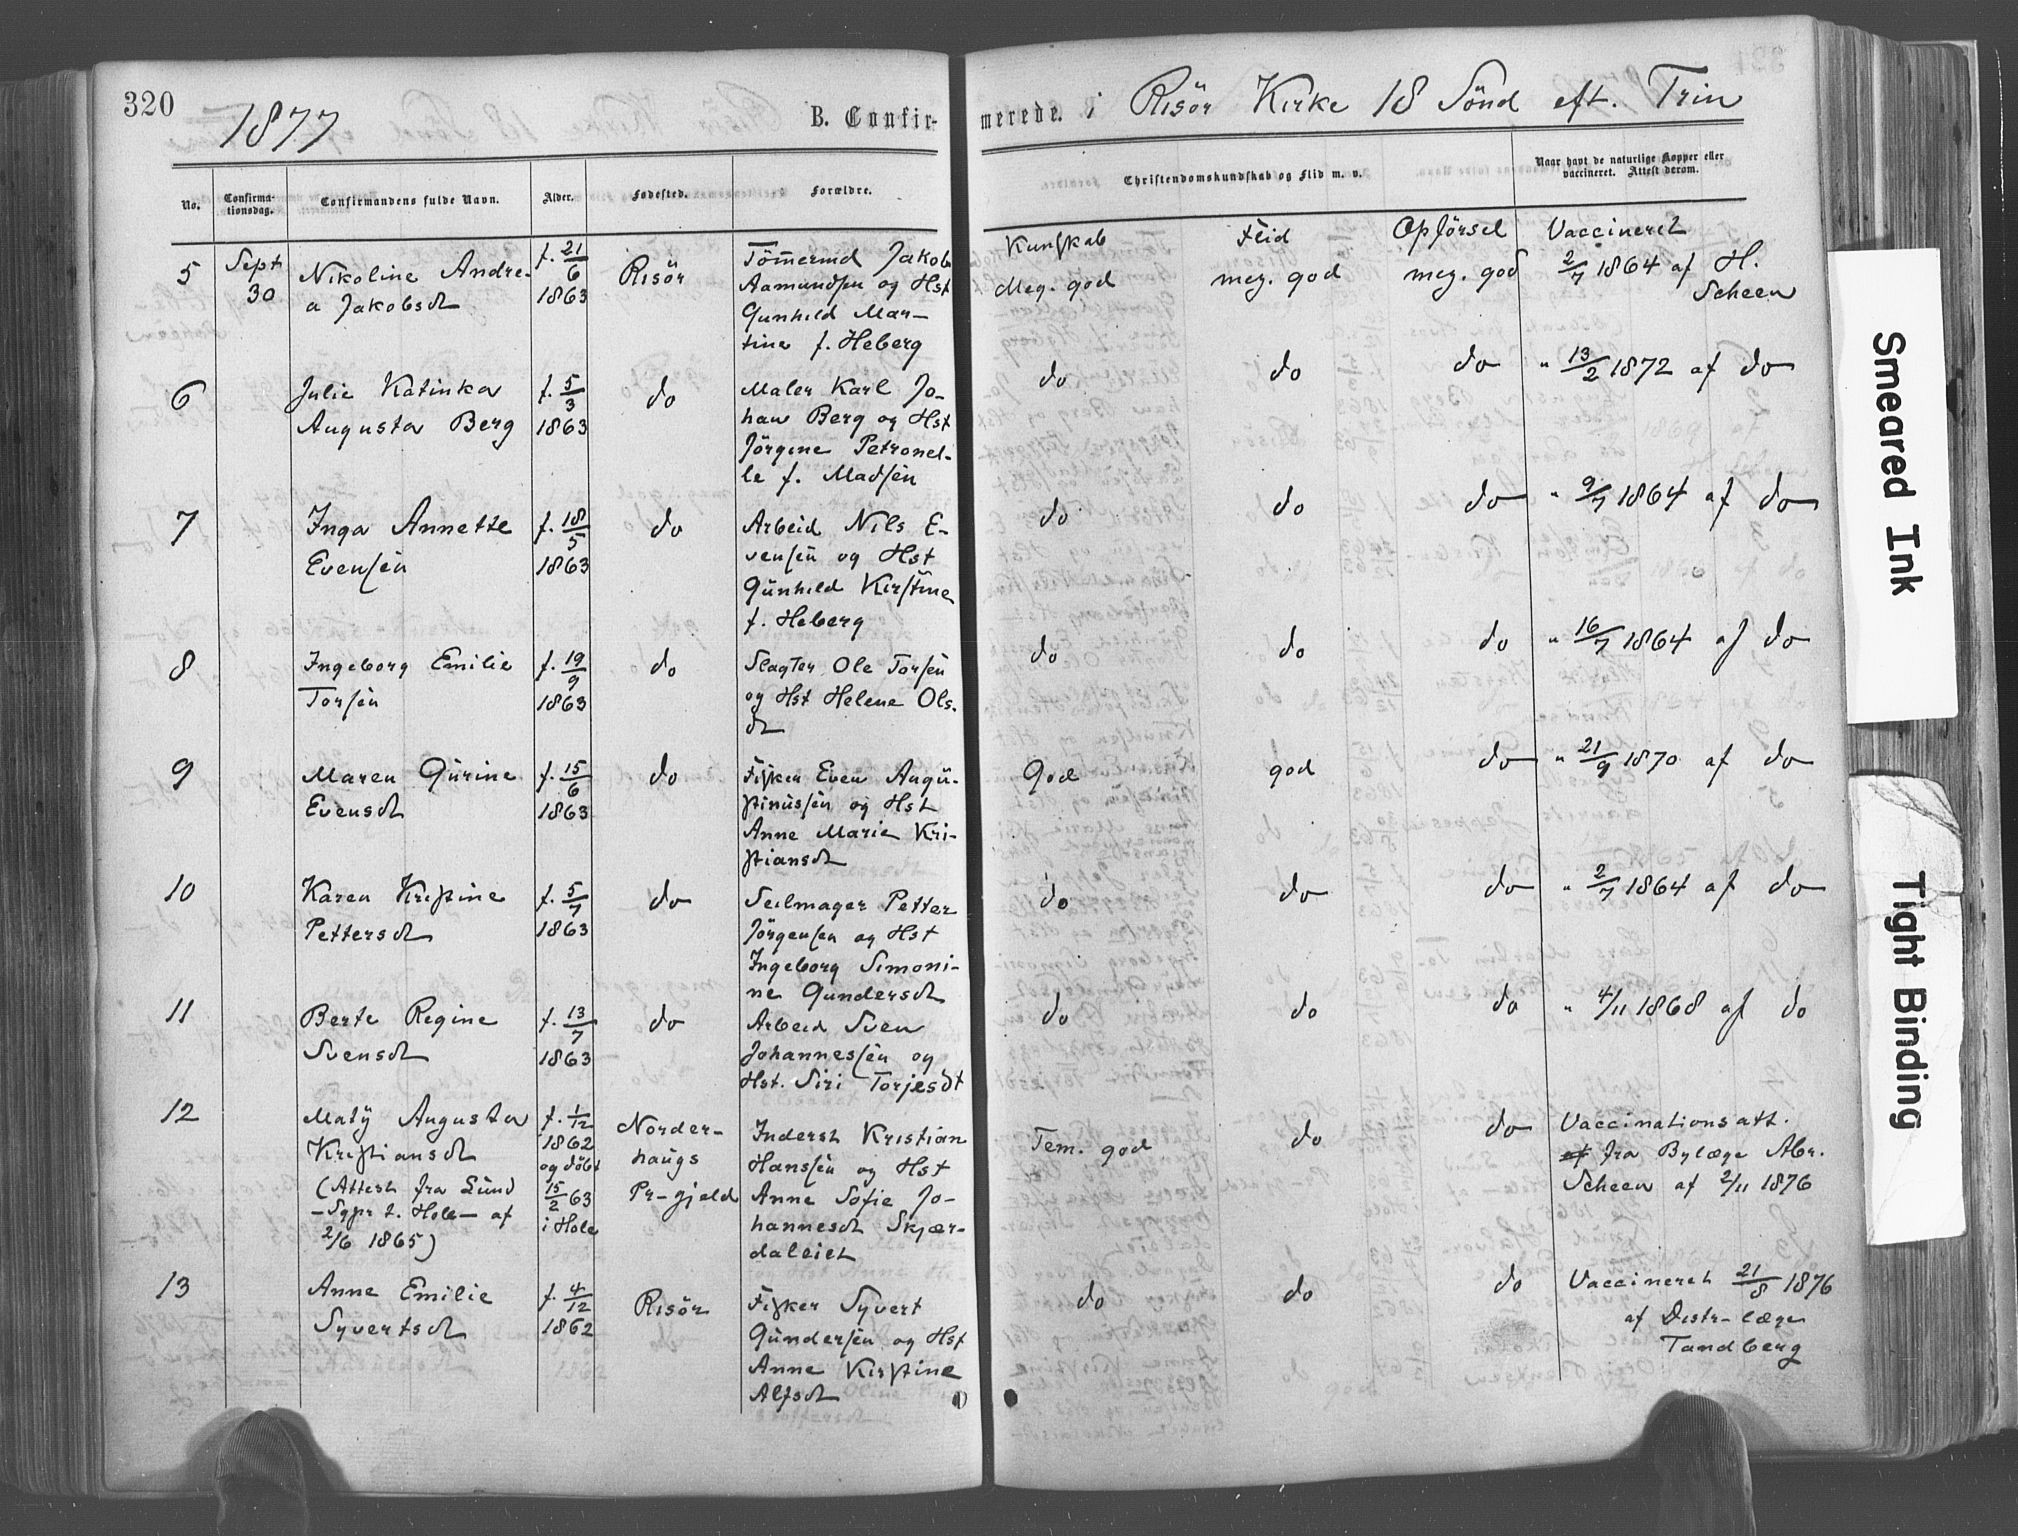 320
1877
B. Confir-
merede. i Risör Kirke 18 Sönd eft. Trin
No.
Confirma-
tionsdag.
Confirmandens fulde Navn.
Alder.
Fødested.
Forældre.
Christendomskundskab og Flid m. v.
Naar havt de naturlige Kopper eller
vaccineret. Attest derom.
Kunskab Flid Opförsel Vaccineret
5
Sept
30
Nikoline Andre-
a Jakobsdt
f. 21/6
1863
Risör
Tömermd Jakob
Aamundsen og Hst
Gunhild Mar-
tine f. Heberg
Meg. god meg. god meg. god 2/7 1864 af H.
Scheen
6
Julie Katinka
Augusta Berg
f. 5/3
1863
do
Maler Karl Jo-
han Berg og Hst
Jörgine Petronel-
le f. Madsen
do do do " 13/2 1872 af do
7
Inga Annette
Evensen
f. 18/5
1863
do
Arbeid Nils E-
vensen og Hst
Gunhild Kirstine
f. Heberg
do do do " 9/7 1864 af do
8
Ingeborg Emilie
Torsen
f. 19/9
1863
do
Slagter Ole Torsen
og Hst Helene Ols.
dt
do do do " 16/7 1864 af do
9
Maren Gurine
Evensdt
f. 15/6
1863
do
Fisker Even Augu-
stinussen og Hst
Anne Marie Kri-
stiansdt
God god do " 21/9 1870 af do
10
Karen Kristine
Pettersdt
f. 5/7
1863
do
Seilmager Petter
Jörgensen og Hst
Ingeborg Simoni-
ne Gundersdt
do do do " 2/7 1864 af do
11
Berte Regine
Svensdt
f. 13/7
1863
do
Arbeid Sven
Johannessen og
Hst. Siri Torjesdt
do do do " 4/11 1868 af do
12
Maty Augusta
Kristiansdt
(Attest fra Lund
-Sgpr i. Hole- af
2/6 1865)
f. 1/12
1862
og döbt
15/2 63
i Hole
Norder-
haugs
Pr-gjeld
Inderst Kristian
Hanssen og Hst
Anne Sofie Jo-
hannesdt Skjær-
daleiet
Tem. god do do Vaccinationsatt.
af fra Bylæge Abr.
Scheen af 2/11 1876
13
Anne Emilie
Syvertsdt
f. 4/12
1862
Risör
Fisker Syvert
Gundersen og Hst
Anne Kirstine
Alfsdt
do do do Vaccineret 21/8 1876
af Distr-læge
Tandberg
Smeared Ink
Tight Binding